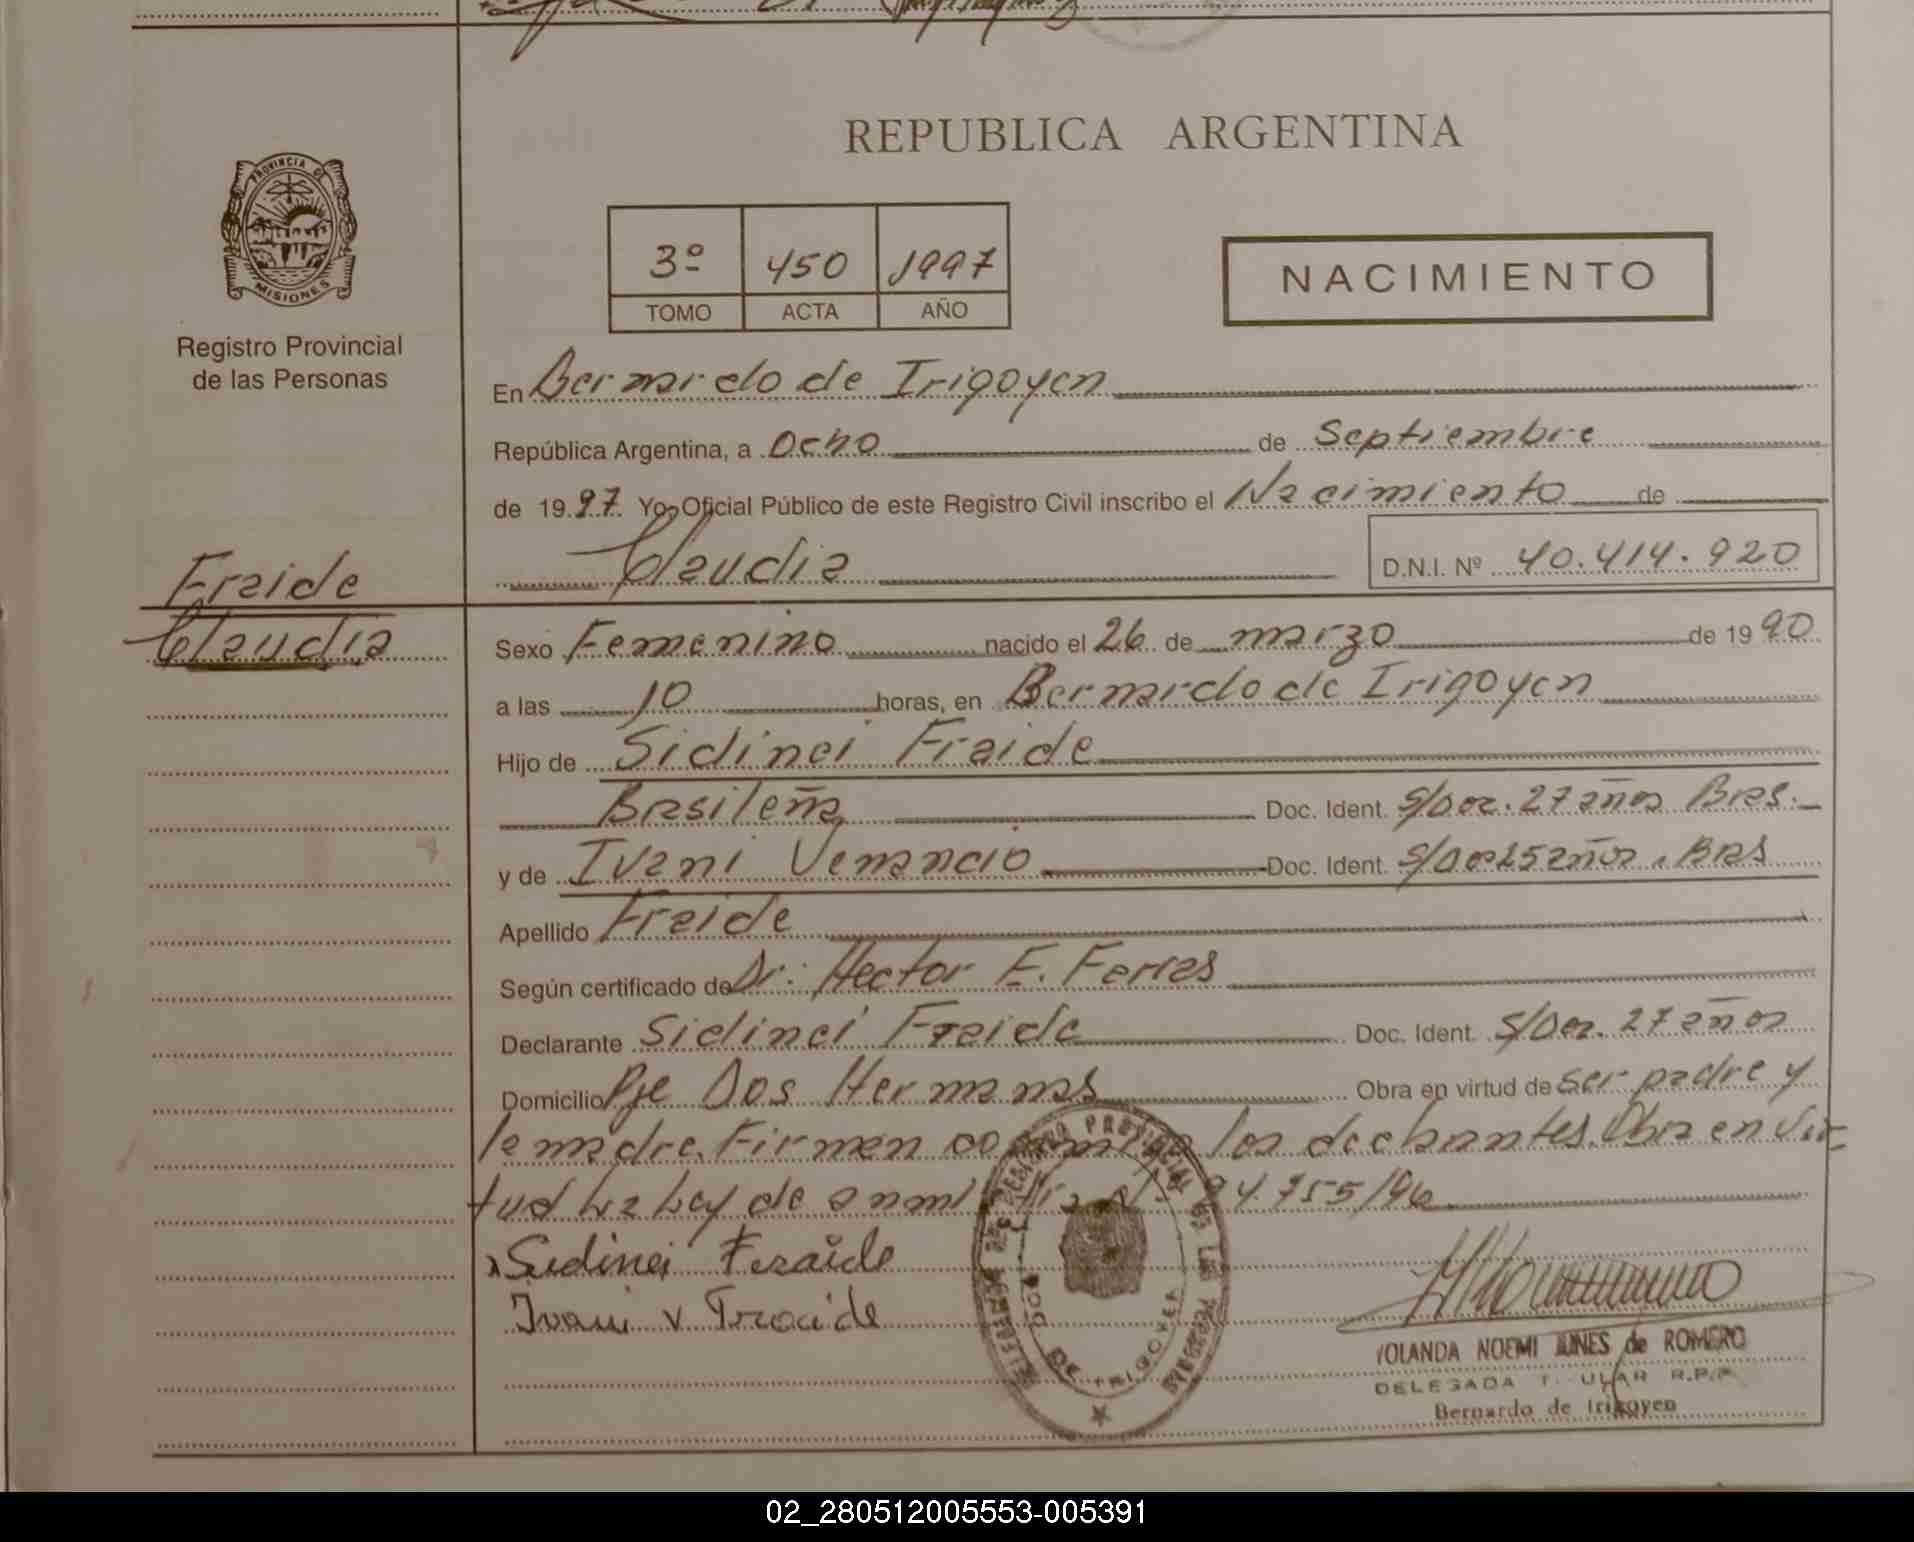 REPUBLICA ARGENTINA
PROVINCIA DE
MISIONES
Registro Provincial
de las Personas
3º 450 1997
TOMO ACTA AÑO
NACIMIENTO
En Bernardo de Irigoyen
República Argentina, a Ocho de Septiembre
de 1997. Yo, Oficial Público de este Registro Civil inscribo el Nacimiento de
Claudia D.N.I. Nº 40.414.920
Fraide
Claudia
Sexo Femenino nacido el 26 de marzo de 1990
a las 10 horas, en Bernardo de Irigoyen
Hijo de Sidinei Fraide
Brasileña Doc. Ident. S/Doc. 27 años Bras.
y de Ivani Venancio Doc. Ident. S/Doc 25 años. Bras
Apellido Fraide
Según certificado de Dr. Hector E. Ferras
Declarante Sidinei Fraide Doc. Ident. S/Doc. 27 años
Domicilio Pje Dos Hermanas Obra en virtud de ser padre y
la madre. Firmen los declarantes. Obra en Vir-
tud La Ley de 24.755/96
Sidinei Fraide
Ivani v Fraide
REGISTRO PROVINCIAL DE LAS PERSONAS
BDO. DE IRIGOYEN
YOLANDA NOEMI de ROMERO
DELEGADA R.P.P.
Bernardo de Irigoyen
02_280512005553-005391